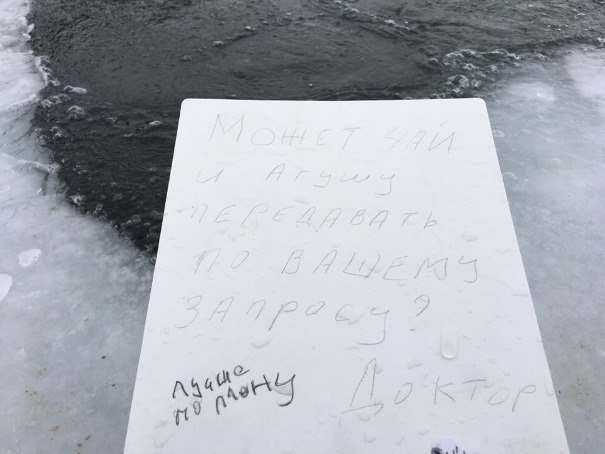 МОЖЕТ ЧАЙ
И АГУШУ
ПЕРЕДАВАТЬ
ПО ВАШЕМУ
ЗАПРОСУ?
Доктор
лучше
по плану